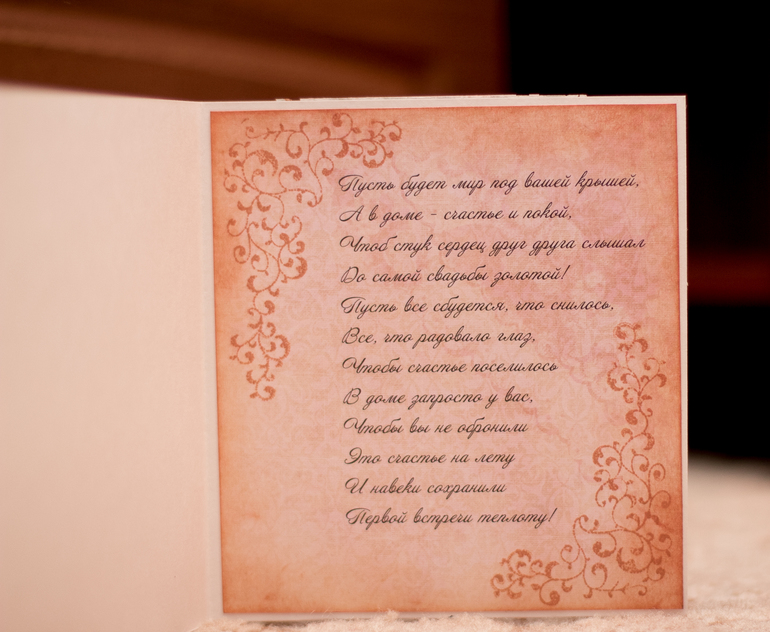 Пусть будет мир под вашей крышей,
А в доме - счастье и покой,
Чтоб стук сердец друг друга слышал
До самой свадьбы золотой!
Пусть все сбудется, что снилось,
Все, что радовало глаз,
Чтобы счастье поселилось
В доме запросто у вас,
Чтобы вы не обронили
Это счастье на лету
И навеки сохранили
Первой встречи теплоту!